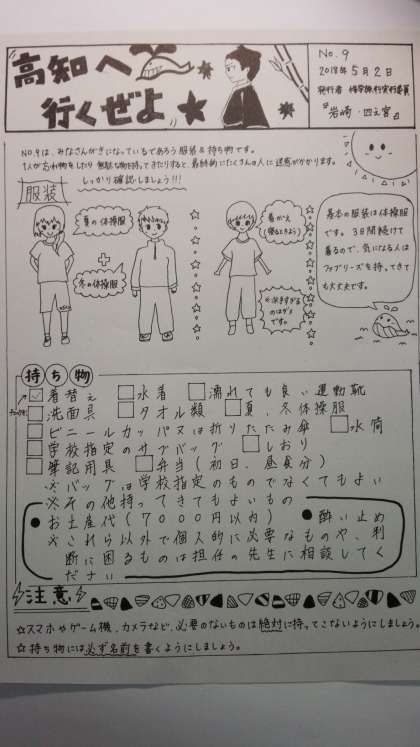 高知へ
行くぜよ
No.9
2018年5月2日
発行者 修学旅行実行委員
岩崎・四之宮
No.9は、みなさんがきになっているであろう服装&持ち物です。
1人が忘れ物をしたり無駄な物を持ってきたりすると、最終的にたくさんの人に迷惑がかかります。
しっかり確認しましょう!!!
服装
夏の体操服
+
冬の体操服
着がえ
(寝るときよう)
※派手すぎる
のはダメ
です。
基本の服装は体操服
です。3日間続けて
着るので、気になる人は
ファブリーズを持ってきて
も大丈夫です。
持ち物
着替え 水着 濡れても良い運動靴
洗面具 タオル類 夏、冬体操服
ビニールカッパ又は折りたたみ傘 水筒
学校指定のサブバッグ しおり
筆記用具 弁当(初日、昼食分)
※バッグは学校指定のものでなくてもよい
※その他持ってきてもよいもの
●お土産代(7000円以内) ●酔い止め
※これら以外で個人的に必要なものや、判
断に困るものは担任の先生に相談してく
ださい
注意
☆スマホやゲーム機、カメラなど、必要のないものは絶対に持ってこないようにしましょう。
☆持ち物には必ず名前を書くようにしましょう。